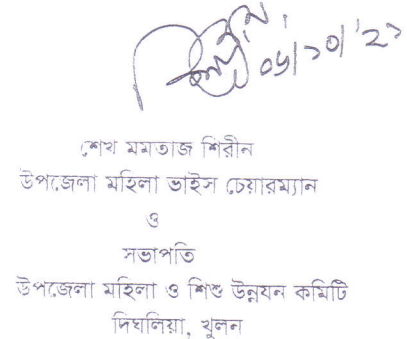 ০৬/১০/'২১
শেখ মমতাজ শিরীন
উপজেলা মহিলা ভাইস চেয়ারম্যান
ও
সভাপতি
উপজেলা মহিলা ও শিশু উন্নয়ন কমিটি
দিঘলিয়া, খুলন